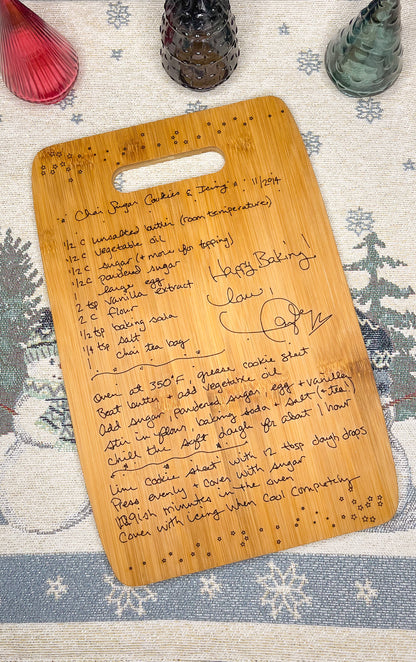 Chai Sugar Cookies & Icing 11/2014
1/2 c unsalted butter (room temperature)
1/2 c vegetable oil
1/2 c sugar (+ more for topping)
1/2 c powdered sugar
1 large egg
2 tsp vanilla extract
2 c flour
1/2 tsp baking soda
1/4 tsp salt
1 chai tea bag
Happy Baking!
Love!
Oven at 350°F, grease cookie sheet
Beat butter + add vegetable oil
Add sugar, powdered sugar, egg + vanilla
stir in flour, baking soda + salt (+ tea!)
chill the soft dough for about 1 hour
Line cookie sheet with 12 tbsp dough drops
Press evenly + cover with sugar
minutes in the oven
Cover with icing when cool completely